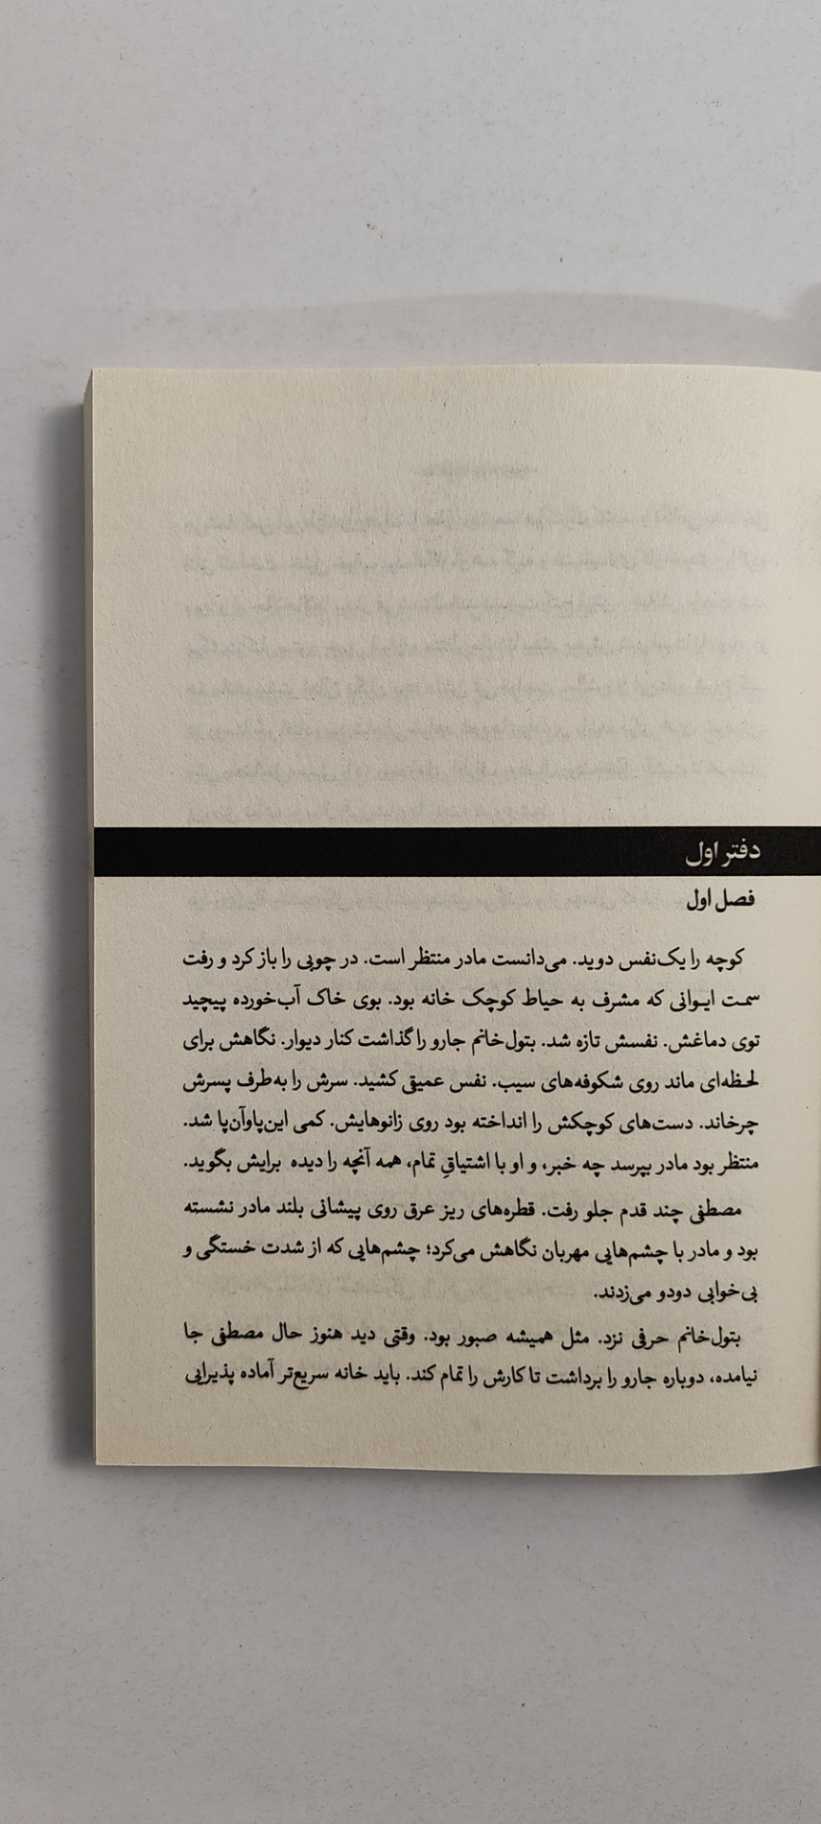 دفتر اول
فصل اول
کوچه را یک‌نفس دوید. می‌دانست مادر منتظر است. در چوبی را باز کرد و رفت
سمت ایـوانی که مشرف به حیاط کوچک خانه بود. بوی خاک آب‌خورده پیچید
توی دماغش. نفسش تازه شد. بتول‌خانم جارو را گذاشت کنار دیوار. نگاهش برای
لحظه‌ای ماند روی شکوفه‌های سیب. نفس عمیقی کشید. سرش را به‌طرف پسرش
چرخاند. دست‌های کوچکش را انداخته بود روی زانوهایش. کمی این‌پاوآن‌پا شد.
منتظر بود مادر بپرسد چه خبر، و او با اشتیاقِ تمام، همه آنچه را دیده برایش بگوید.
مصطفی چند قدم جلو رفت. قطره‌های ریز عرق روی پیشانی بلند مادر نشسته
بود و مادر با چشم‌هایی مهربان نگاهش می‌کرد؛ چشم‌هایی که از شدت خستگی و
بی‌خوابی دودو می‌زدند.
بتول‌خانم حرفی نزد. مثل همیشه صبور بود. وقتی دید هنوز حال مصطفی جا
نیامده، دوباره جارو را برداشت تا کارش را تمام کند. باید خانه سریع‌تر آماده پذیرایی